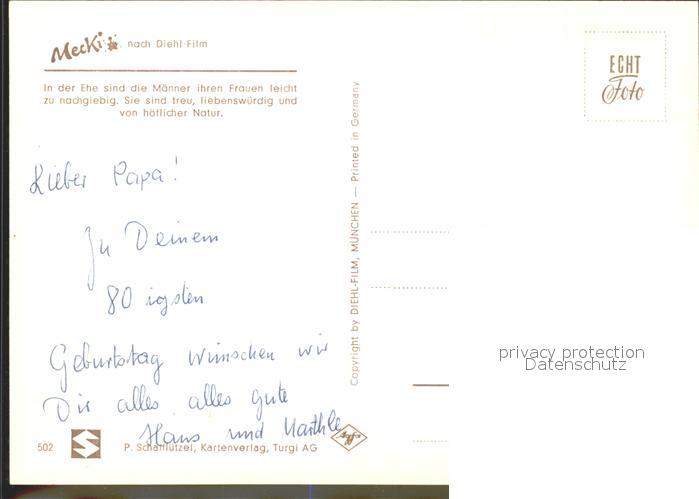 Mecki nach Diehl-Film
In der Ehe sind die Männer ihren Frauen leicht
zu nachgiebig. Sie sind treu, liebenswürdig und
von höflicher Natur.
Lieber Papa!
Zu Deinem
80 igsten
Geburtstag wünschen wir
Dir alles, alles gute
Hans und
502 P. Schanlützel, Kartenverlag, Turgi AG
Copyright by DIEHL-FILM, MÜNCHEN — Printed in Germany
Agfa
ECHT
Foto
privacy protection
Datenschutz